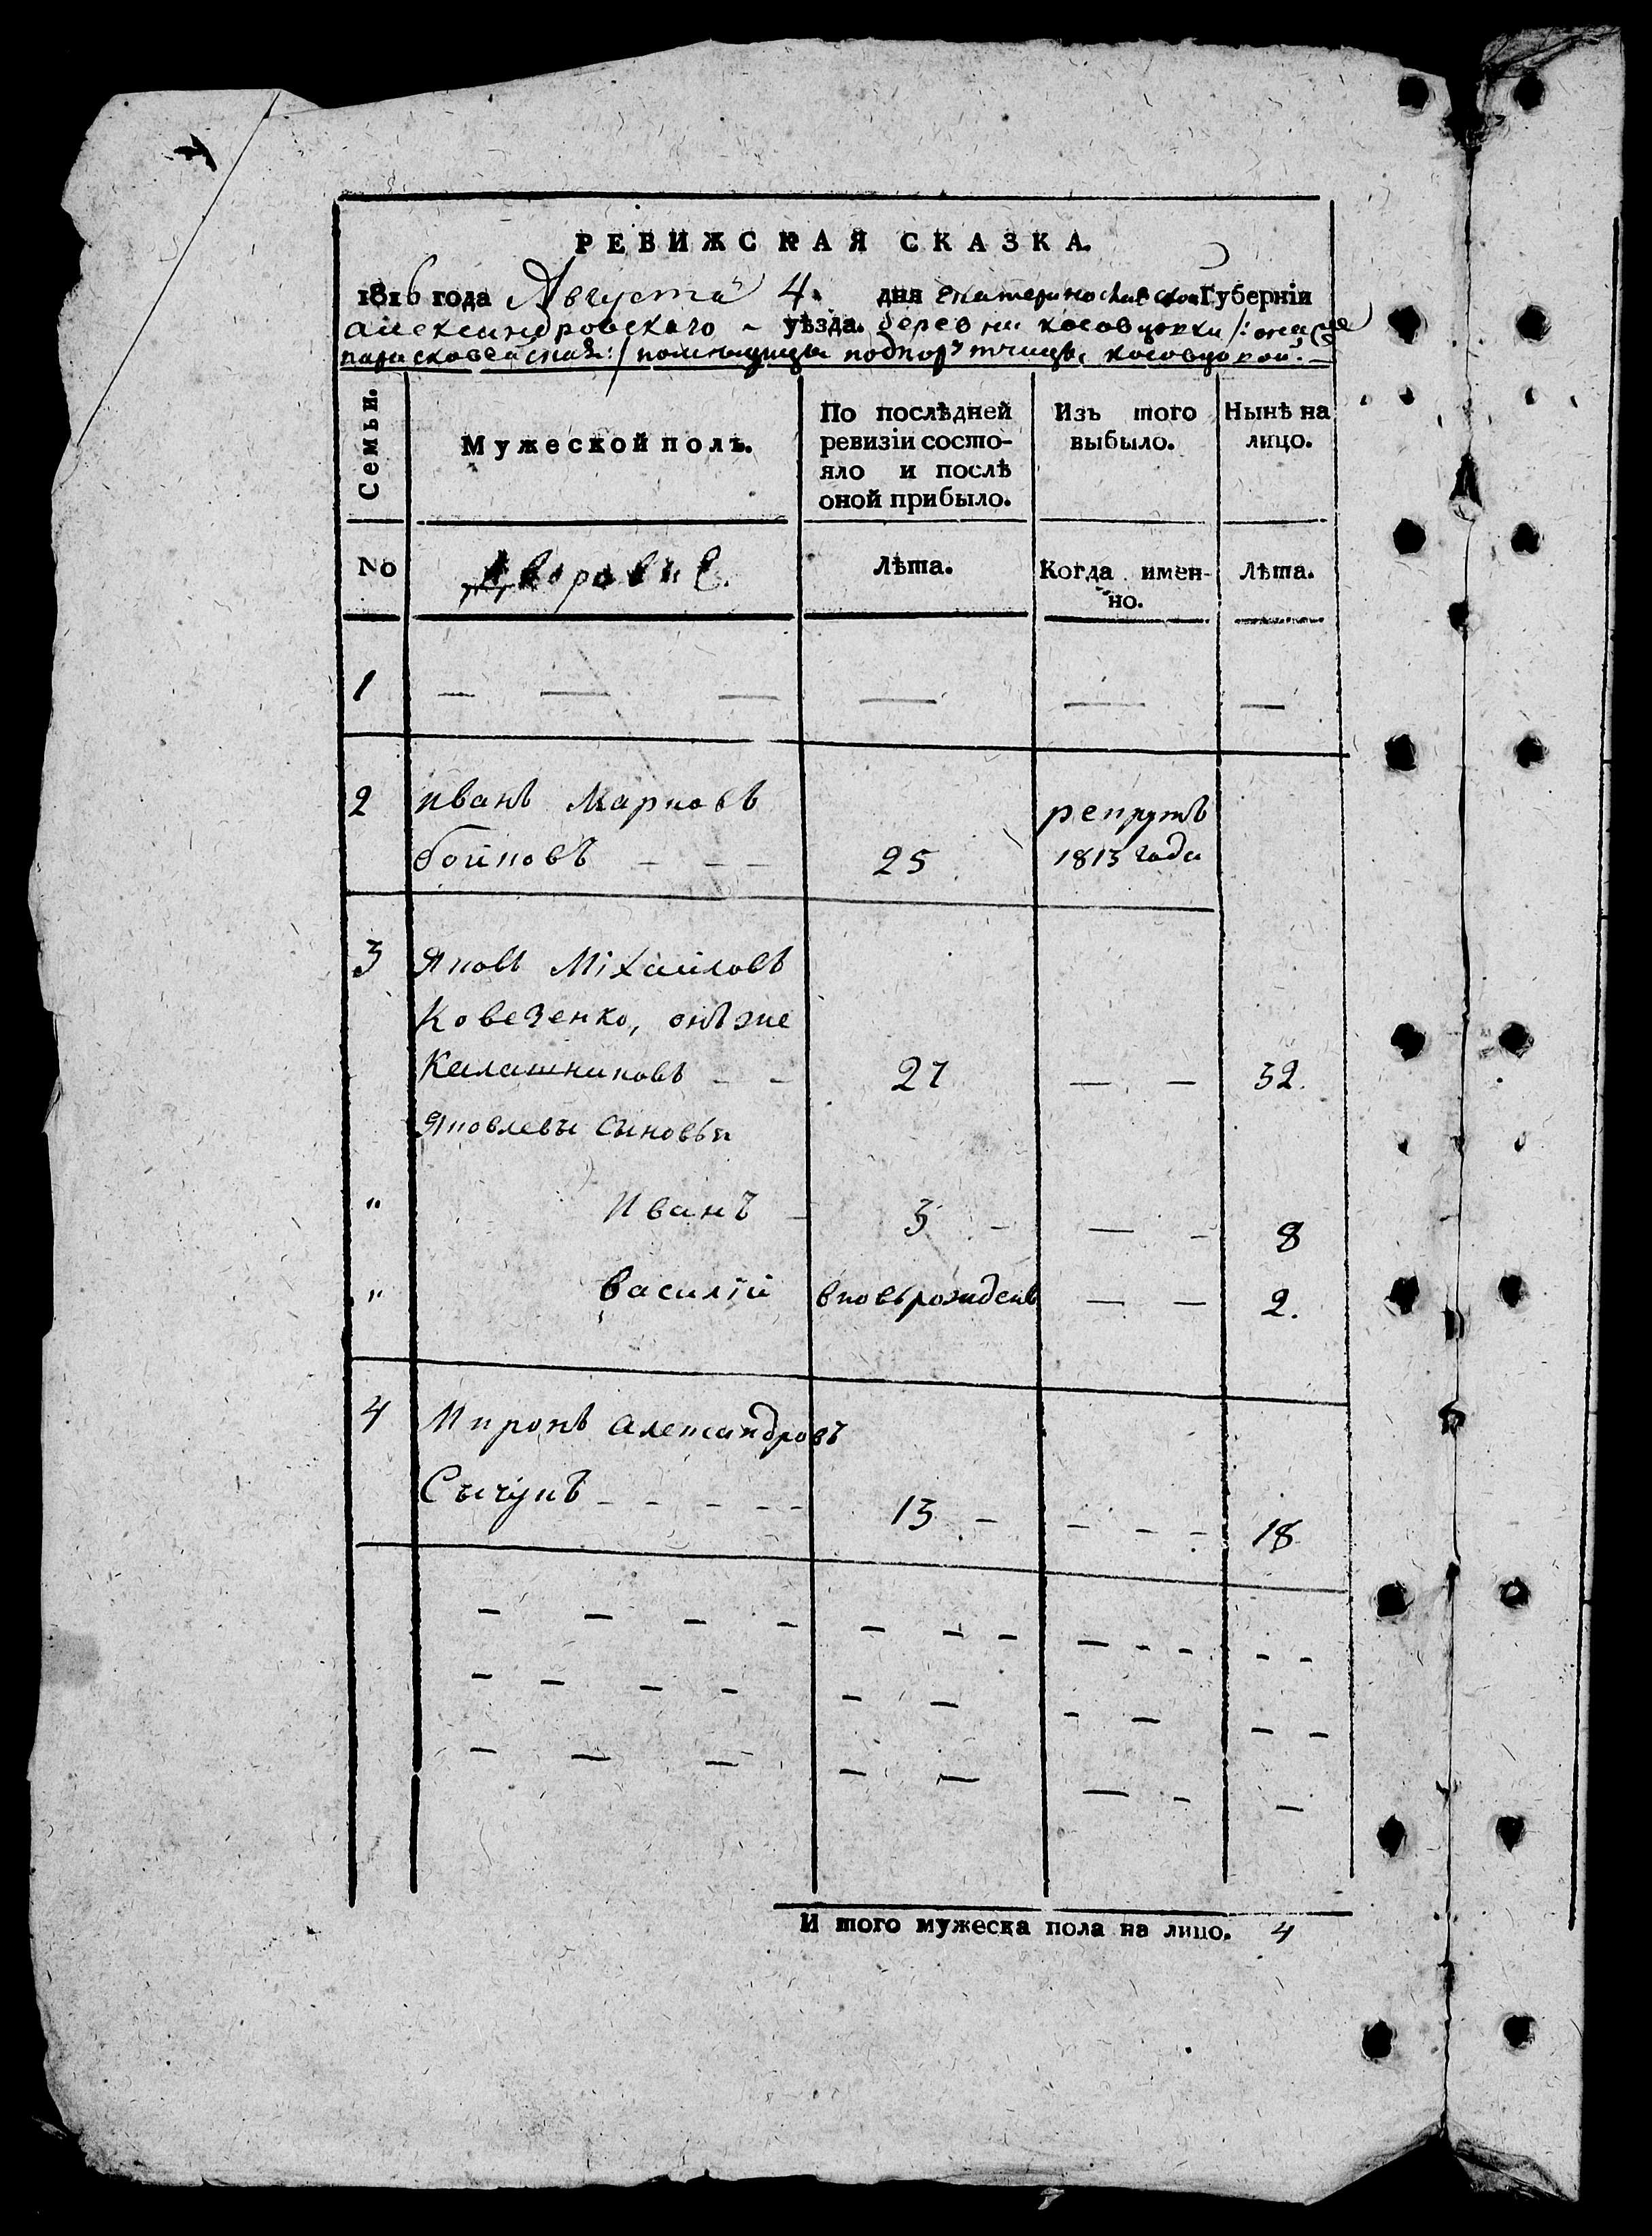 РЕВИЖСКАЯ СКАЗКА.
1816 года Августа 4. дня екатеринославской Губерніи
александровскаго - уѣзда. деревни косовцовки /: она же
парасковеевская :/ помещицы подпорутчицы косовцовой: —
Семьи. Мужеской полъ. По послѣдней ревизіи состо- яло и послѣ оной прибыло. Изъ того выбыло. Нынѣ на лицо.
No Дворовые. Лѣта. Когда имен- но. Лѣта.
1 — — — — — —
2 иванъ Марковъ рекрутъ
бойковъ — — — 25 1813 года
3 Яковъ Михайловъ
Ковезенко, онъ же
Калашниковъ - - 27 — — 32.
Яковлевы сыновья
" Иванъ - 3 - — - 8
" василій вновьрожденъ — — 2.
4 Миронъ александровъ
Сычукъ - - - - - 13 - - - - 18
- - - - - - - - - - - -
- - - - - - - - - -
- - - - - - - -
И того мужеска пола на лицо. 4